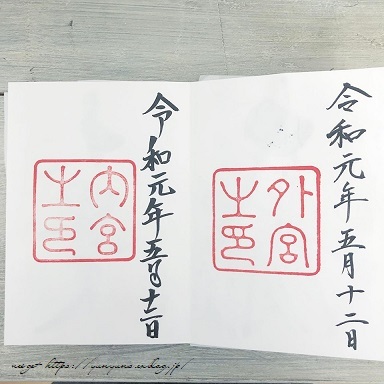 令和元年五月十二日
外宮
之印
令和元年五月十二日
内宮
之印